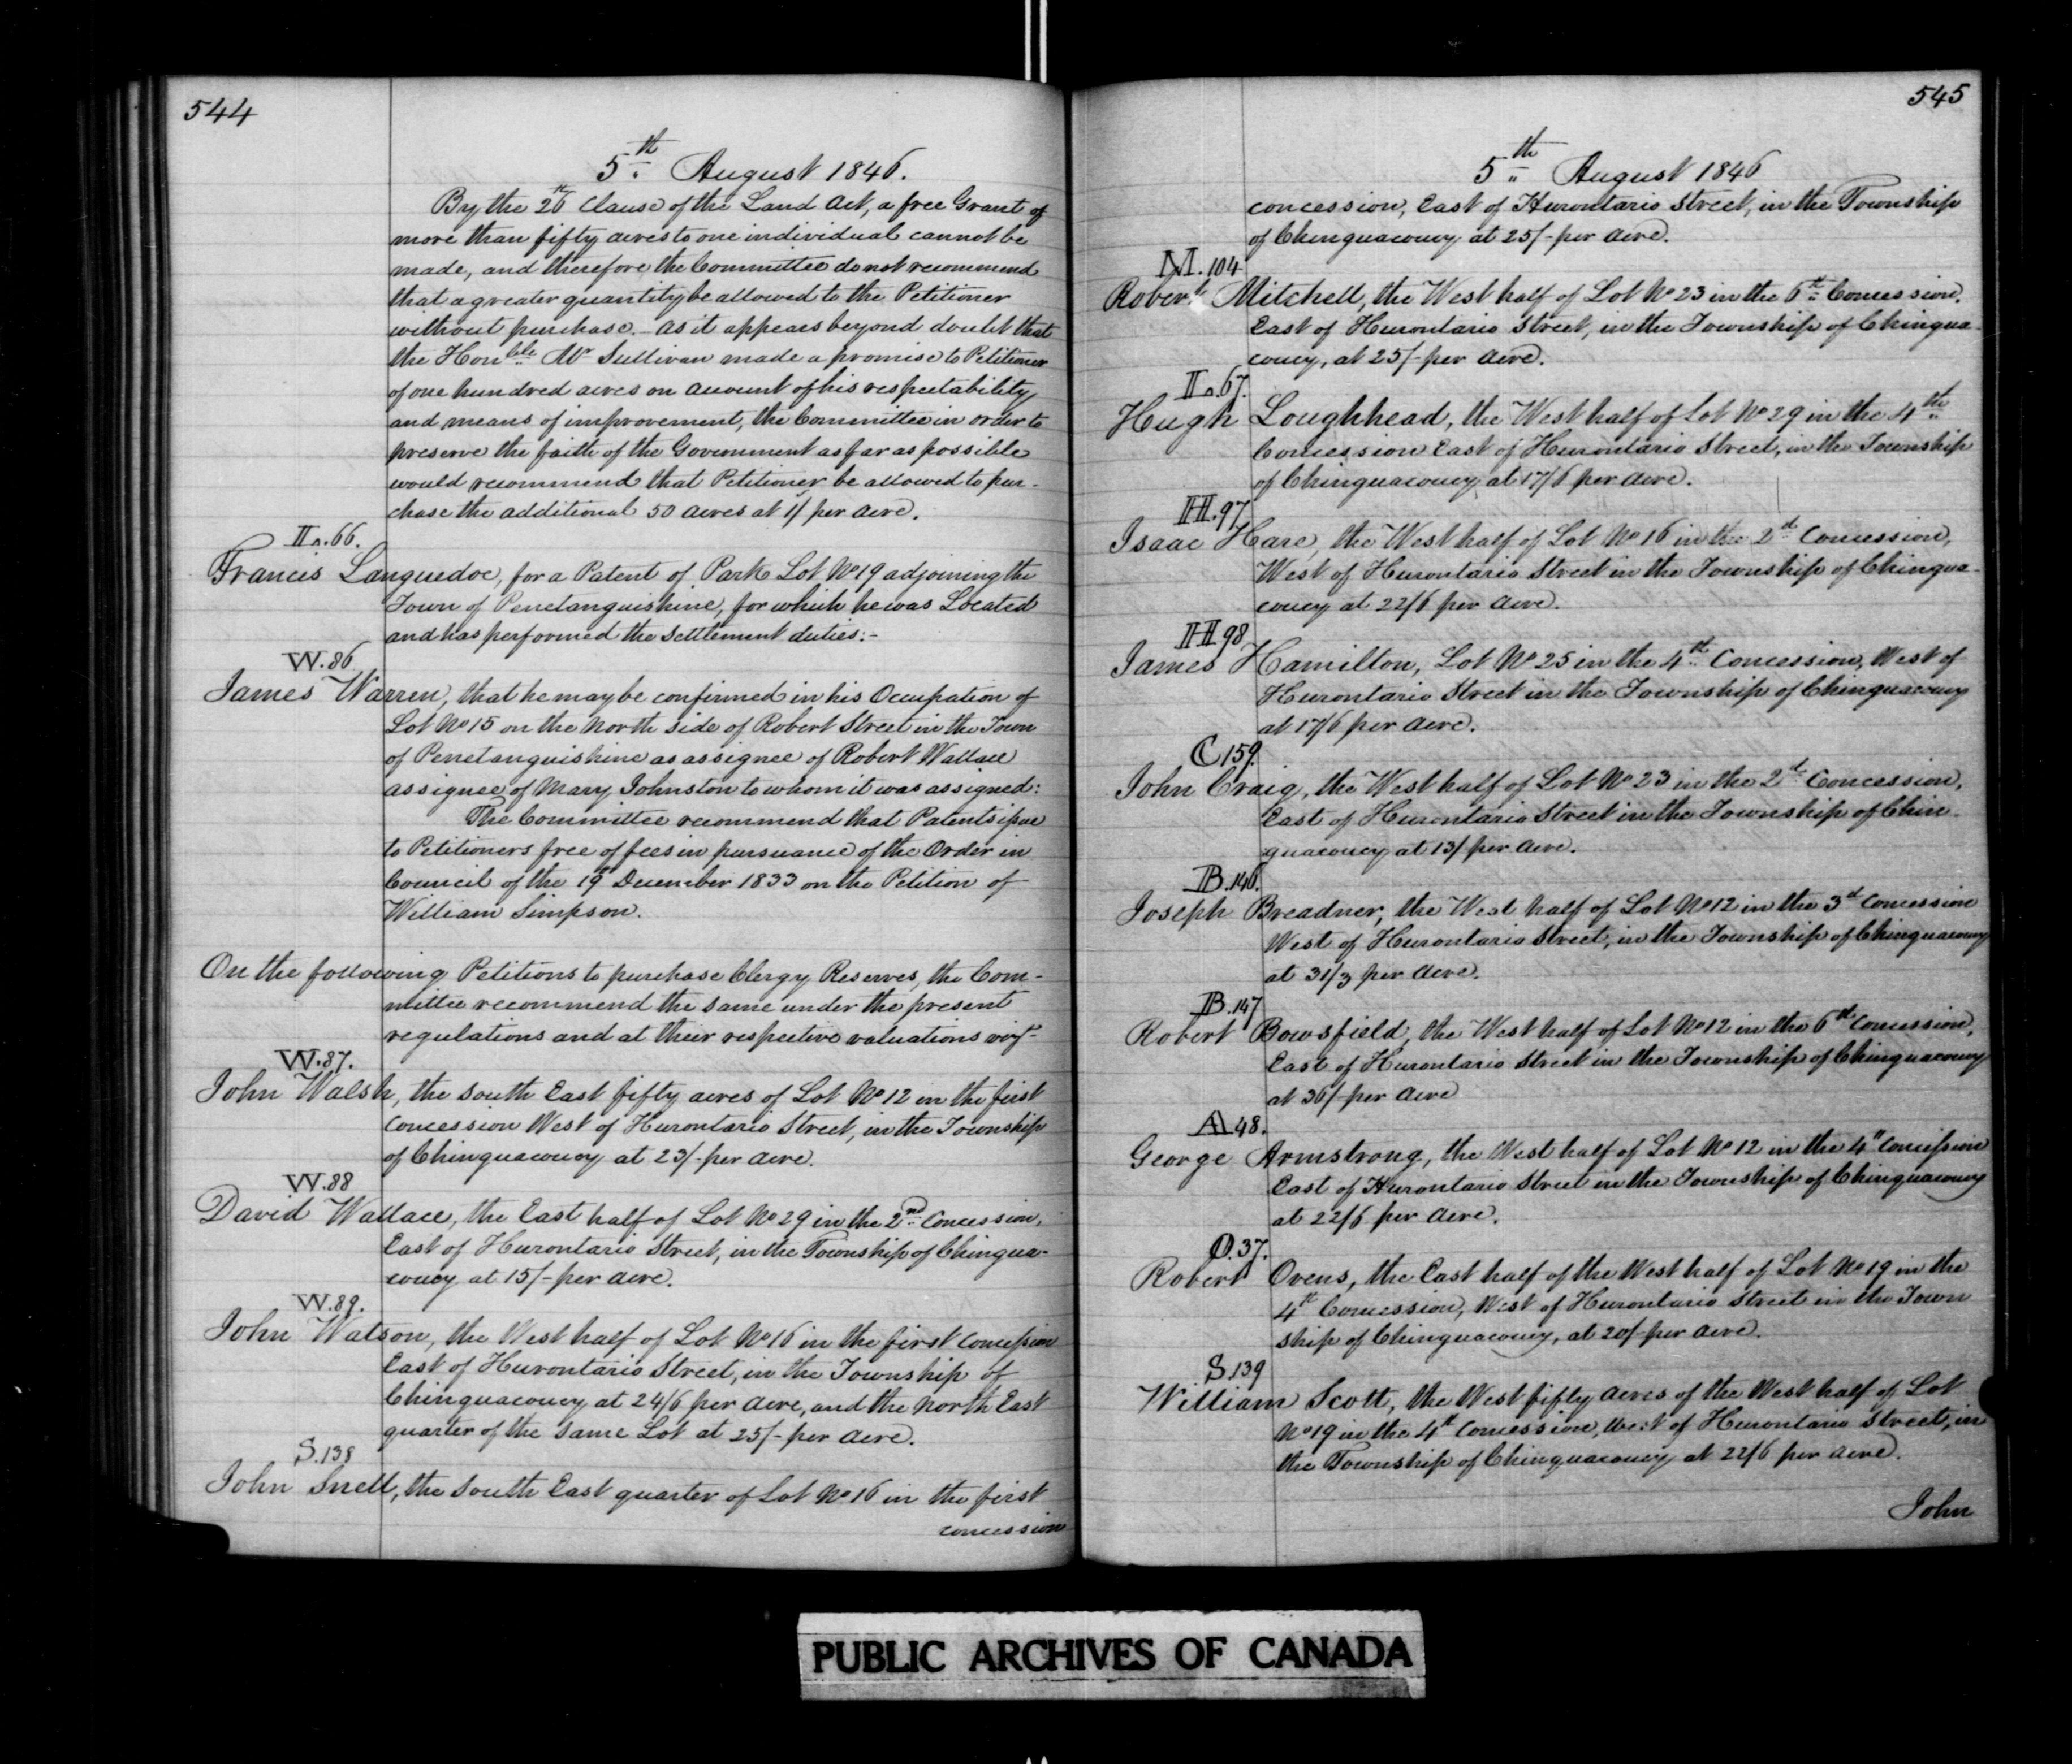 544
5th August 1846.
By the 26th Clause of the Land Act, a free Grant of
more than fifty acres to one individual cannot be
made, and therefore the Committee do not recommend
that a greater quantity be allowed to the Petitioner
without purchase. As it appears beyond doubt that
the Honble Mr Sullivan made a promise to Petitioner
of one hundred acres on account of his respectability
and means of improvement, the Committee in order to
preserve the faith of the Government as far as possible
would recommend that Petitioner be allowed to pur-
chase the additional 50 acres at 1/ per Acre.
L.66.
Francis Languedoc, for a Patent of Park Lot No 19 adjoining the
Town of Penetanguishine, for which he was Located
and has performed the settlement duties:-
W.86
James Warren, that he may be confirmed in his Occupation of
Lot No 15 on the North side of Robert Street in the Town
of Penetanguishine as assignee of Robert Wallace
assignee of Mary Johnston to whom it was assigned:
The Committee recommend that Patents issue
to Petitioners free of fees in pursuance of the Order in
Council of the 19th December 1833 on the Petition of
William Simpson.
On the following Petitions to purchase Clergy Reserves, the Com-
mittee recommend the same under the present
regulations and at their respective valuations vizt
W.87.
John Walsh, the South East fifty acres of Lot No 12 in the first
Concession West of Hurontario Street, in the Township
of Chinguacoucy at 23/- per Acre.
W.88
David Wallace, the East half of Lot No 29 in the 2nd Concession,
East of Hurontario Street, in the Township of Chingua-
coucy at 15/- per Acre.
W.89.
John Watson, the West half of Lot No 16 in the first Concession
East of Hurontario Street, in the Township of
Chinguacoucy at 24/6 per Acre, and the North East
quarter of the same Lot at 25/- per Acre.
S.138
John Snell, the South East quarter of Lot No 16 in the first
concession
545
5th August 1846
concession, East of Hurontario Street, in the Township
of Chinguacoucy at 25/- per Acre.
M.104
Robert Mitchell, the West half of Lot No 23 in the 6th Concession,
East of Hurontario Street, in the Township of Chingua-
coucy, at 25/- per Acre.
L.67.
Hugh Loughhead, the West half of Lot No 29 in the 4th
Concession East of Hurontario Street, in the Township
of Chinguacoucy at 17/6 per Acre.
H.97
Isaac Hare, the West half of Lot No 16 in the 2d Concession,
West of Hurontario Street in the Township of Chingua-
coucy at 22/6 per Acre.
H.98
James Hamilton, Lot No 25 in the 4th Concession, West of
Hurontario Street in the Township of Chinguacoucy
at 17/6 per Acre.
C 159.
John Craig, the West half of Lot No 23 in the 2d Concession,
East of Hurontario Street in the Township of Chin-
guacoucy at 13/ per Acre.
B.146.
Joseph Breadner, the West half of Lot No 12 in the 3d Concession
West of Hurontario Street, in the Township of Chinguacoucy
at 31/3 per Acre.
B.147
Robert Bowsfield, the West half of Lot No 12 in the 6th Concession,
East of Hurontario Street in the Township of Chinguacoucy
at 36/- per Acre
A 48.
George Armstrong, the West half of Lot No 12 in the 4" Concession
East of Hurontario Street in the Township of Chinguacoucy
at 22/6 per Acre.
O.37.
Robert Ovens, the East half of the West half of Lot No 19 in the
4th Concession, West of Hurontario Street in the Town
ship of Chinguacoucy, at 20/- per Acre.
S 139
William Scott, the West fifty acres of the West half of Lot
No 19 in the 4th Concession, West of Hurontario Street, in
the Township of Chinguacoucy at 22/6 per Acre.
John
PUBLIC ARCHIVES OF CANADA